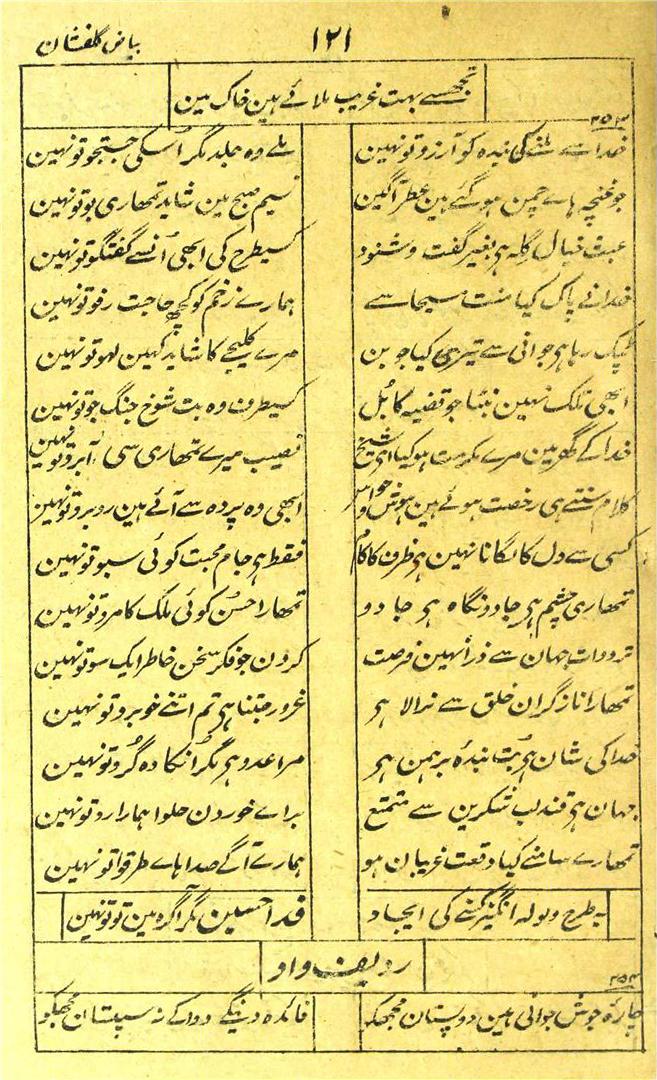 بیاض گلفشان
۱۲۱
تجھسے بہت غریب ملائے ہین خاک مین
۲۵۳
خدا سے ملنے کی بندہ کو آرزو تو نہین
ملے وہ جلد مگر اُسکی جستجو تو نہین
جو غنچہ ہاے چمن ہو گئے ہین عطر آگین
نسیم صبح مین شاید تمھاری بو تو نہین
عبث خیال گلہ ہر بغیر گفت و شنود
کسیطرح کی ابھی اُنسے گفتگو تو نہین
خدانے پاک کیا منت مسیحا سے
ہمارے زخم کو کچھ حاجت رفو تو نہین
ٹپک رہا ہر جوانی سے تیری کیا جوبن
مرے کلیجے کا شاید کہین لہو تو نہین
ابھی تلک نہین نبٹا جو قضیہ کابُل
کسیطرف وہ بت شوخ جنگ جو تو نہین
خدا کے گھر مین مرے مکرمت ہو کیا ای شیخ
نصیب میرے تمھاری سی آبرو تو نہین
کلام سنتے ہی رخصت ہوئے ہین ہوش و حواس
ابھی وہ پردہ سے آئے ہین روبرو تو نہین
کسی سے دل کا لگانا نہین ہر ظرف کا کام
فقط ہر جام محبت کوئی سبو تو نہین
تمھاری چشم ہر جادو نگاہ ہر جادو
تمھارا حسن کوئی ملک کامرو تو نہین
ترددات جہان سے ذرا نہین فرصت
کرون جو فکر سخن خاطر ایک سو تو نہین
تمھارا ناز گران خلق سے نرالا ہر
غرور جتنا ہر تم اتنے خوبرو تو نہین
خدا کی شان ہر بُت بندۂ برہمن ہر
مرا عدو ہر مگر اُنکا وہ گرو تو نہین
جہان ہر قند لب شکرین سے متمتع
براے خوردن حلوا ہمارا رو تو نہین
تمھارے سامنے کیا وقعت غریبان ہو
ہمارے آگے صداہاے طرقوا تو نہین
یہ طرح ولولہ انگیز کسنے کی ایجاد
فدا حسین مگر آگرہ مین تو تو نہین
ردیف واو
۲۵۴
چارۂ جوش جوانی ہین دو پستان مجھکو
فائدہ دینگے دوا کے نہ سپستان مجھکو